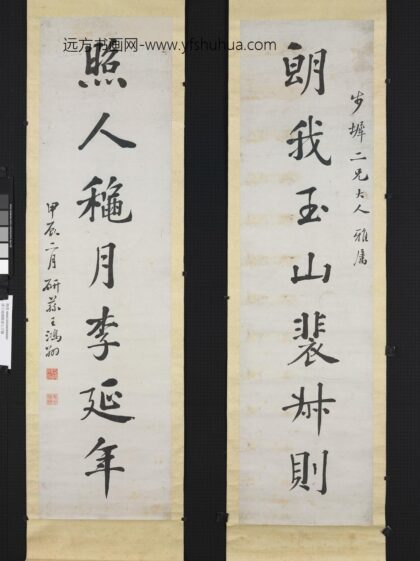 远方书画网-www.yfshuhua.com
步墀二兄大人雅屬
朗我玉山裴叔則
照人穐月李延年
甲辰二月研蓀王鴻翔